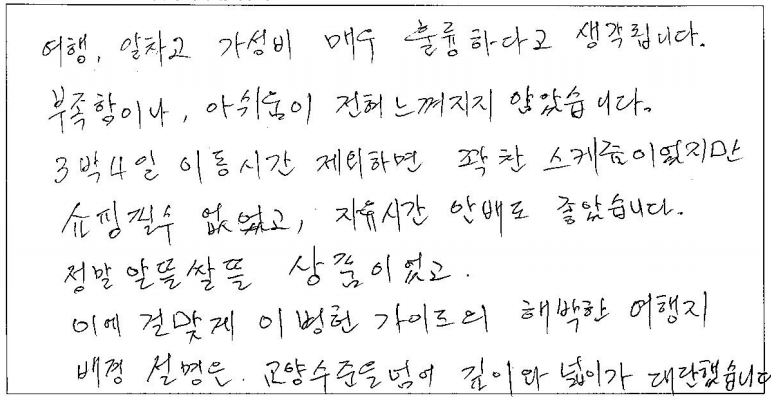 여행, 알차고 가성비 매우 훌륭하다고 생각됩니다.
부족함이나, 아쉬움이 전혀 느껴지지 않았습니다.
3박4일 이동시간 제외하면 꽉 찬 스케쥴이었지만
쇼핑필수 없었고, 자유시간 안배도 좋았습니다.
정말 알뜰쌀뜰 상품이었고.
이에 걸맞게 이병헌 가이드의 해박한 여행지
배경 설명은. 교양수준을넘어 깊이와 넓이가 대단했습니다